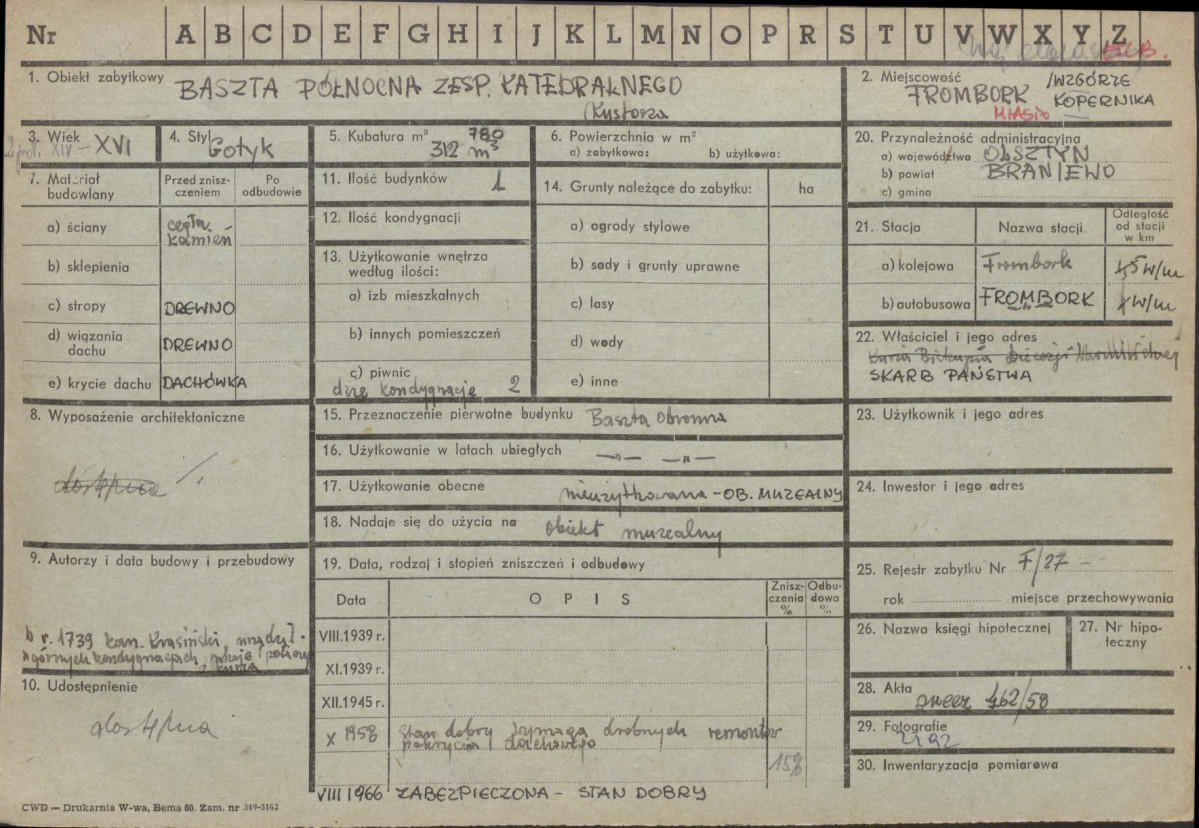 Nr A B C D E F G H I J K L M N O P R S T U V W X Y Z
1. Obiekt zabytkowy BASZTA PÓŁNOCNA ZESP. KATEDRALNEGO
(Kustosza
2. Miejscowość /WZGÓRZE
FROMBORK KOPERNIKA
MIASTO
3. Wiek XIV – XVI
4. Styl Gotyk
5. Kubatura m³ 780
312 m³
6. Powierzchnia w m²
a) zabytkowa: b) użytkowa:
7. Materiał budowlany
Przed zniszczeniem
Po odbudowie
a) ściany cegła, kamień
b) sklepienia
c) stropy DREWNO
d) wiązania dachu DREWNO
e) krycie dachu DACHÓWKA
8. Wyposażenie architektoniczne
9. Autorzy i data budowy i przebudowy
w r. 1739 kan. Krasiński
górnych kondygnacjach
10. Udostępnienie
dostępna
11. Ilość budynków 1
12. Ilość kondygnacji
13. Użytkowanie wnętrza
według ilości:
a) izb mieszkalnych
b) innych pomieszczeń
c) piwnic
dwie kondygnacje 2
14. Grunty należące do zabytku: ha
a) ogrody stylowe
b) sady i grunty uprawne
c) lasy
d) wody
e) inne
15. Przeznaczenie pierwotne budynku Baszta obronna
16. Użytkowanie w latach ubiegłych —„— —„—
17. Użytkowanie obecne nieużytkowana – OB. MUZEALNY
18. Nadaje się do użycia na obiekt muzealny
19. Data, rodzaj i stopień zniszczeń i odbudowy
Data O P I S Zniszczenia % Odbudowa %
VIII.1939 r.
XI.1939 r.
XII.1945 r.
X 1958 Stan dobry wymaga drobnych remontów
pokrycia dachowego
15%
VIII 1966 ZABEZPIECZONA – STAN DOBRY
20. Przynależność administracyjna
a) województwo OLSZTYN
b) powiat BRANIEWO
c) gmina
21. Stacja Nazwa stacji Odległość od stacji w km
a) kolejowa Frombork
b) autobusowa FROMBORK
22. Właściciel i jego adres
Kuria Biskupia Diecezji Warmińskiej
SKARB PAŃSTWA
23. Użytkownik i jego adres
24. Inwestor i jego adres
25. Rejestr zabytku Nr F/27 –
rok miejsce przechowywania
26. Nazwa księgi hipotecznej
27. Nr hipoteczny
28. Akta 462/58
29. Fotografie
30. Inwentaryzacja pomiarowa
CWD — Drukarnia W-wa, Bema 60. Zam. nr 349-5162